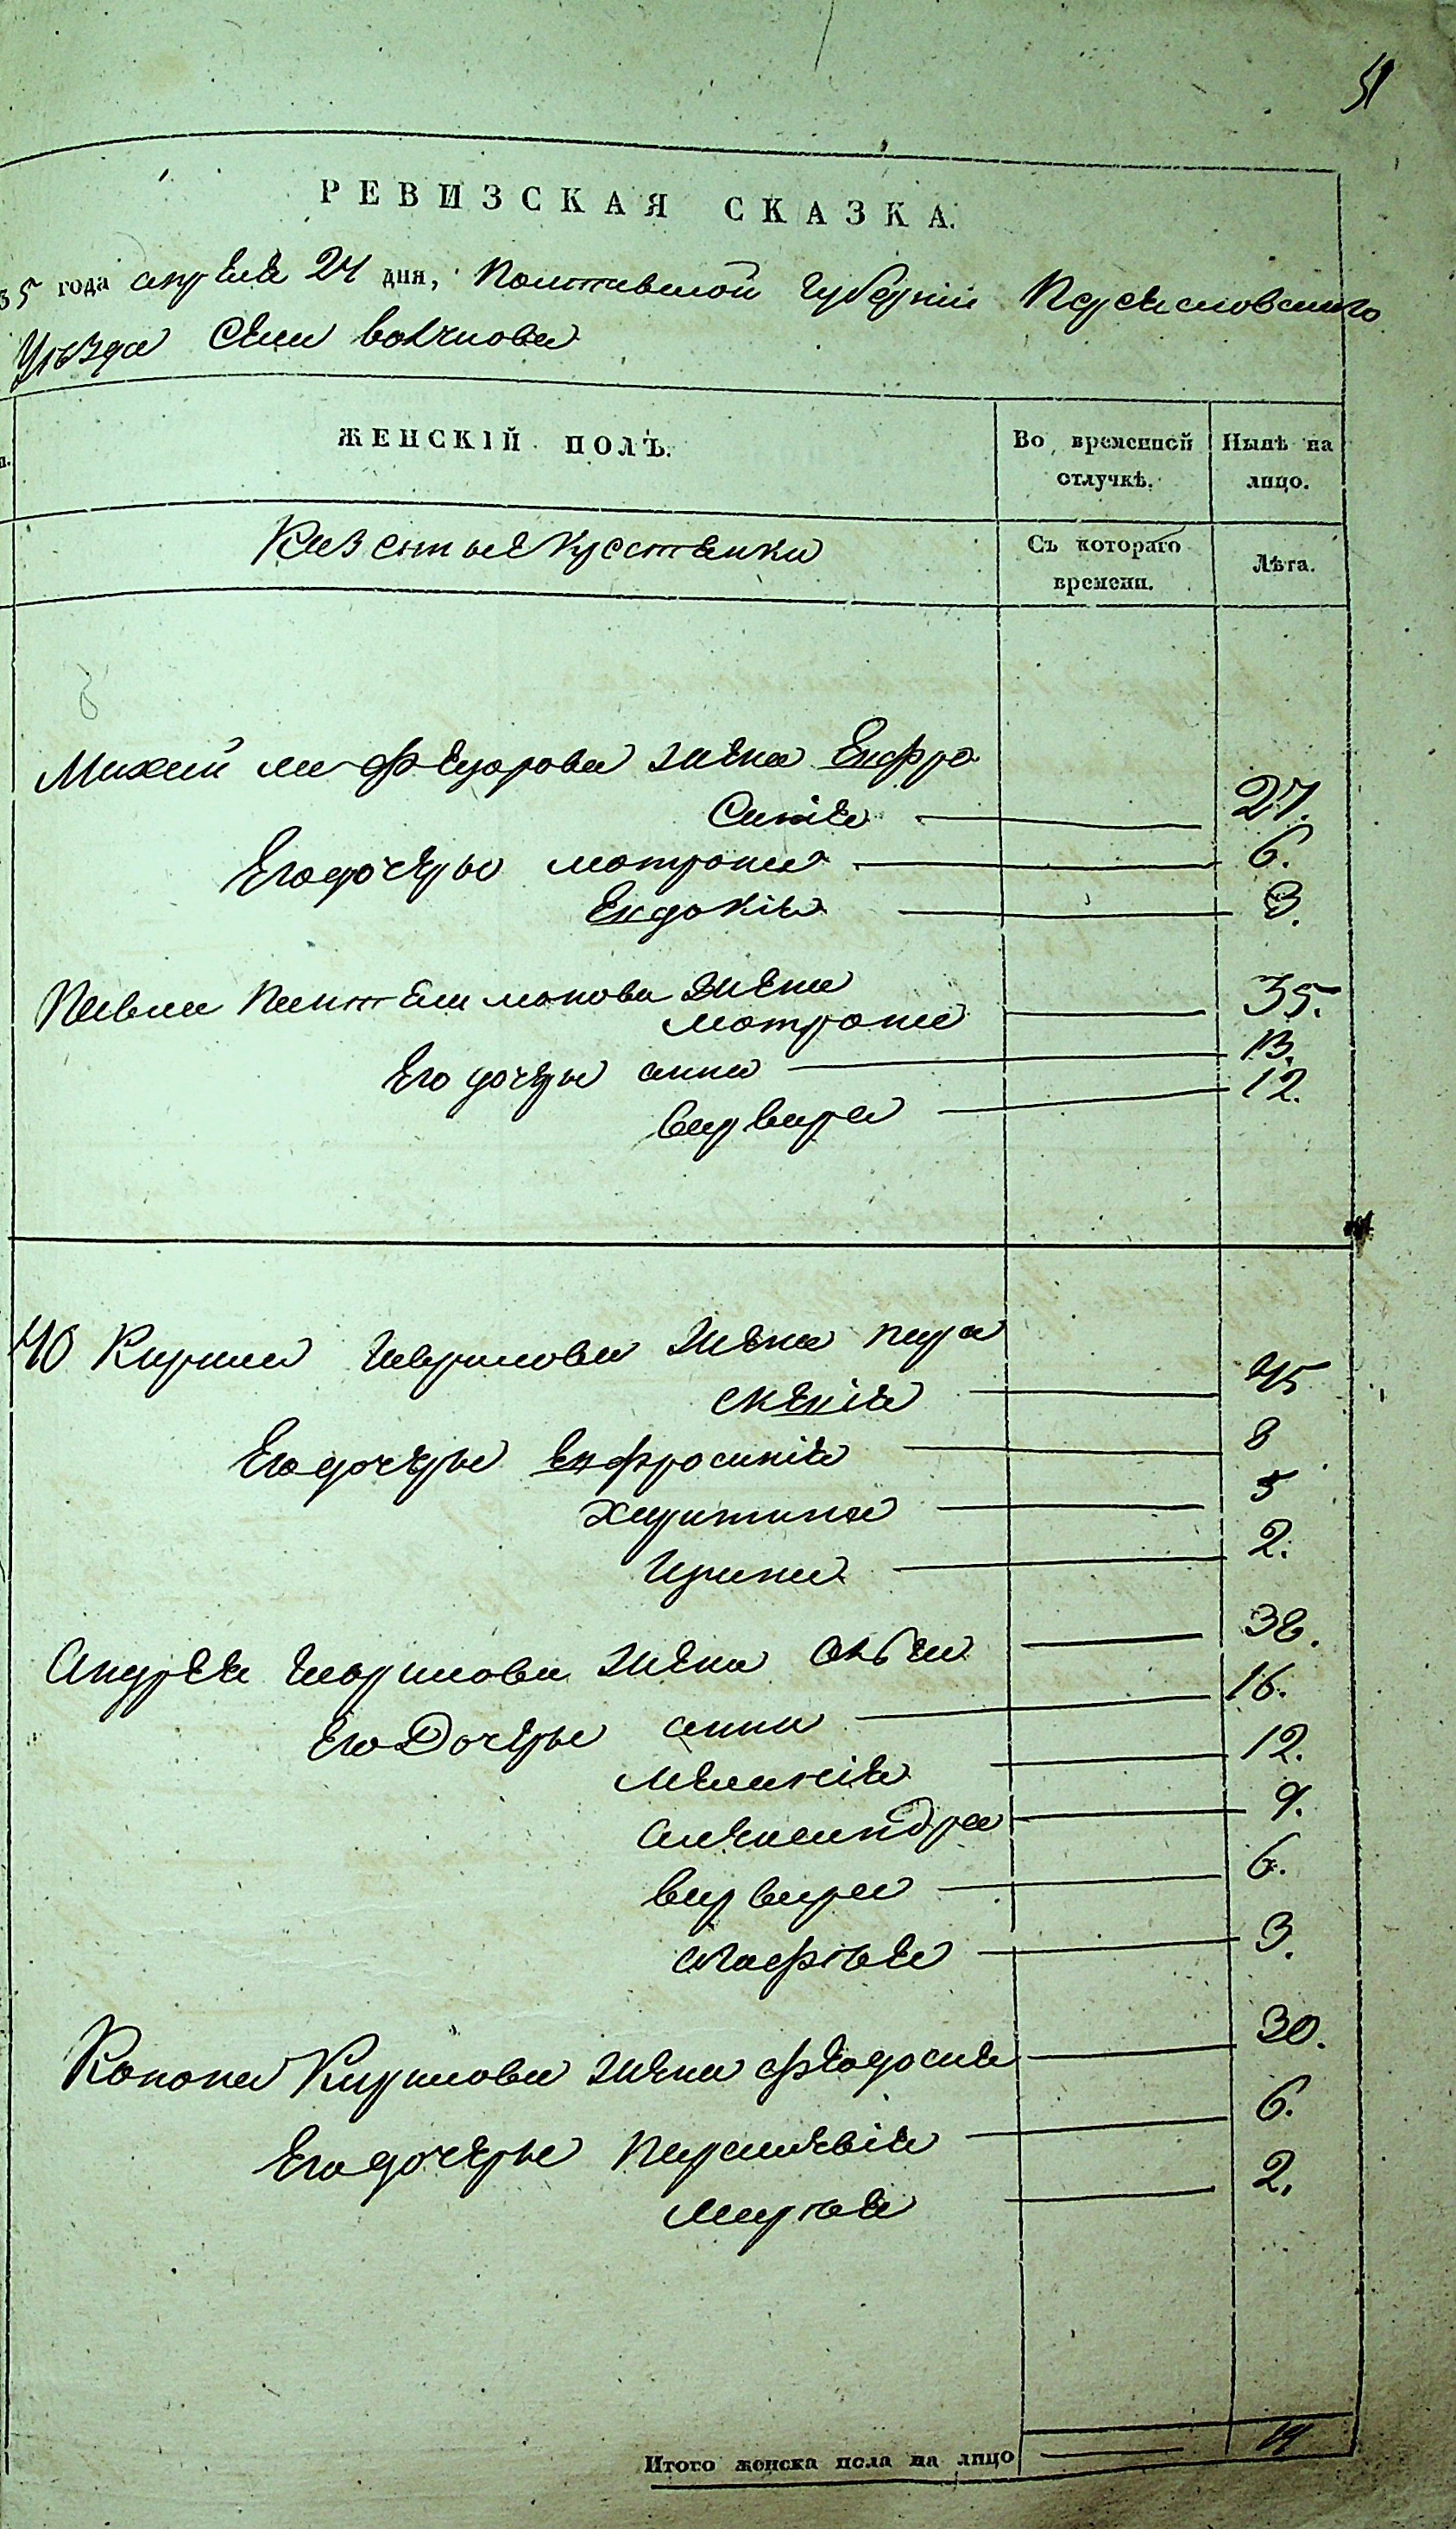 51
РЕВИЗСКАЯ СКАЗКА.
35 года апреля 24 дня, Полтавской Губернии Переясловского
Уезда Села Вовчкова
ЖЕНСКІЙ ПОЛЪ.
Во временной
отлучкѣ.
Нынѣ на
лицо.
Казенные крестьянки
Съ котораго
времени.
Лѣта.
Федорова жена Евфро
синія 27.
Его дочеры мотрона 6.
Евдокія 3.
Павла Пантелимонова жена
мотрона 35.
Его дочеры анна 13.
варвара 12.
40 Кирила Гаврилова жена пара
скевія 45
Его дочеры Евфросинія 8
харитина 5
Ирина 2.
Андрея Гаврилова жена 38.
Его Дочеры анна 16.
меланія 12.
александра 9.
варвара 6.
агафія 3.
Конона Кирилова жена феодосия 30.
Его дочеры Параскевія 6.
марфа 2.
Итого женска пола на лицо 19